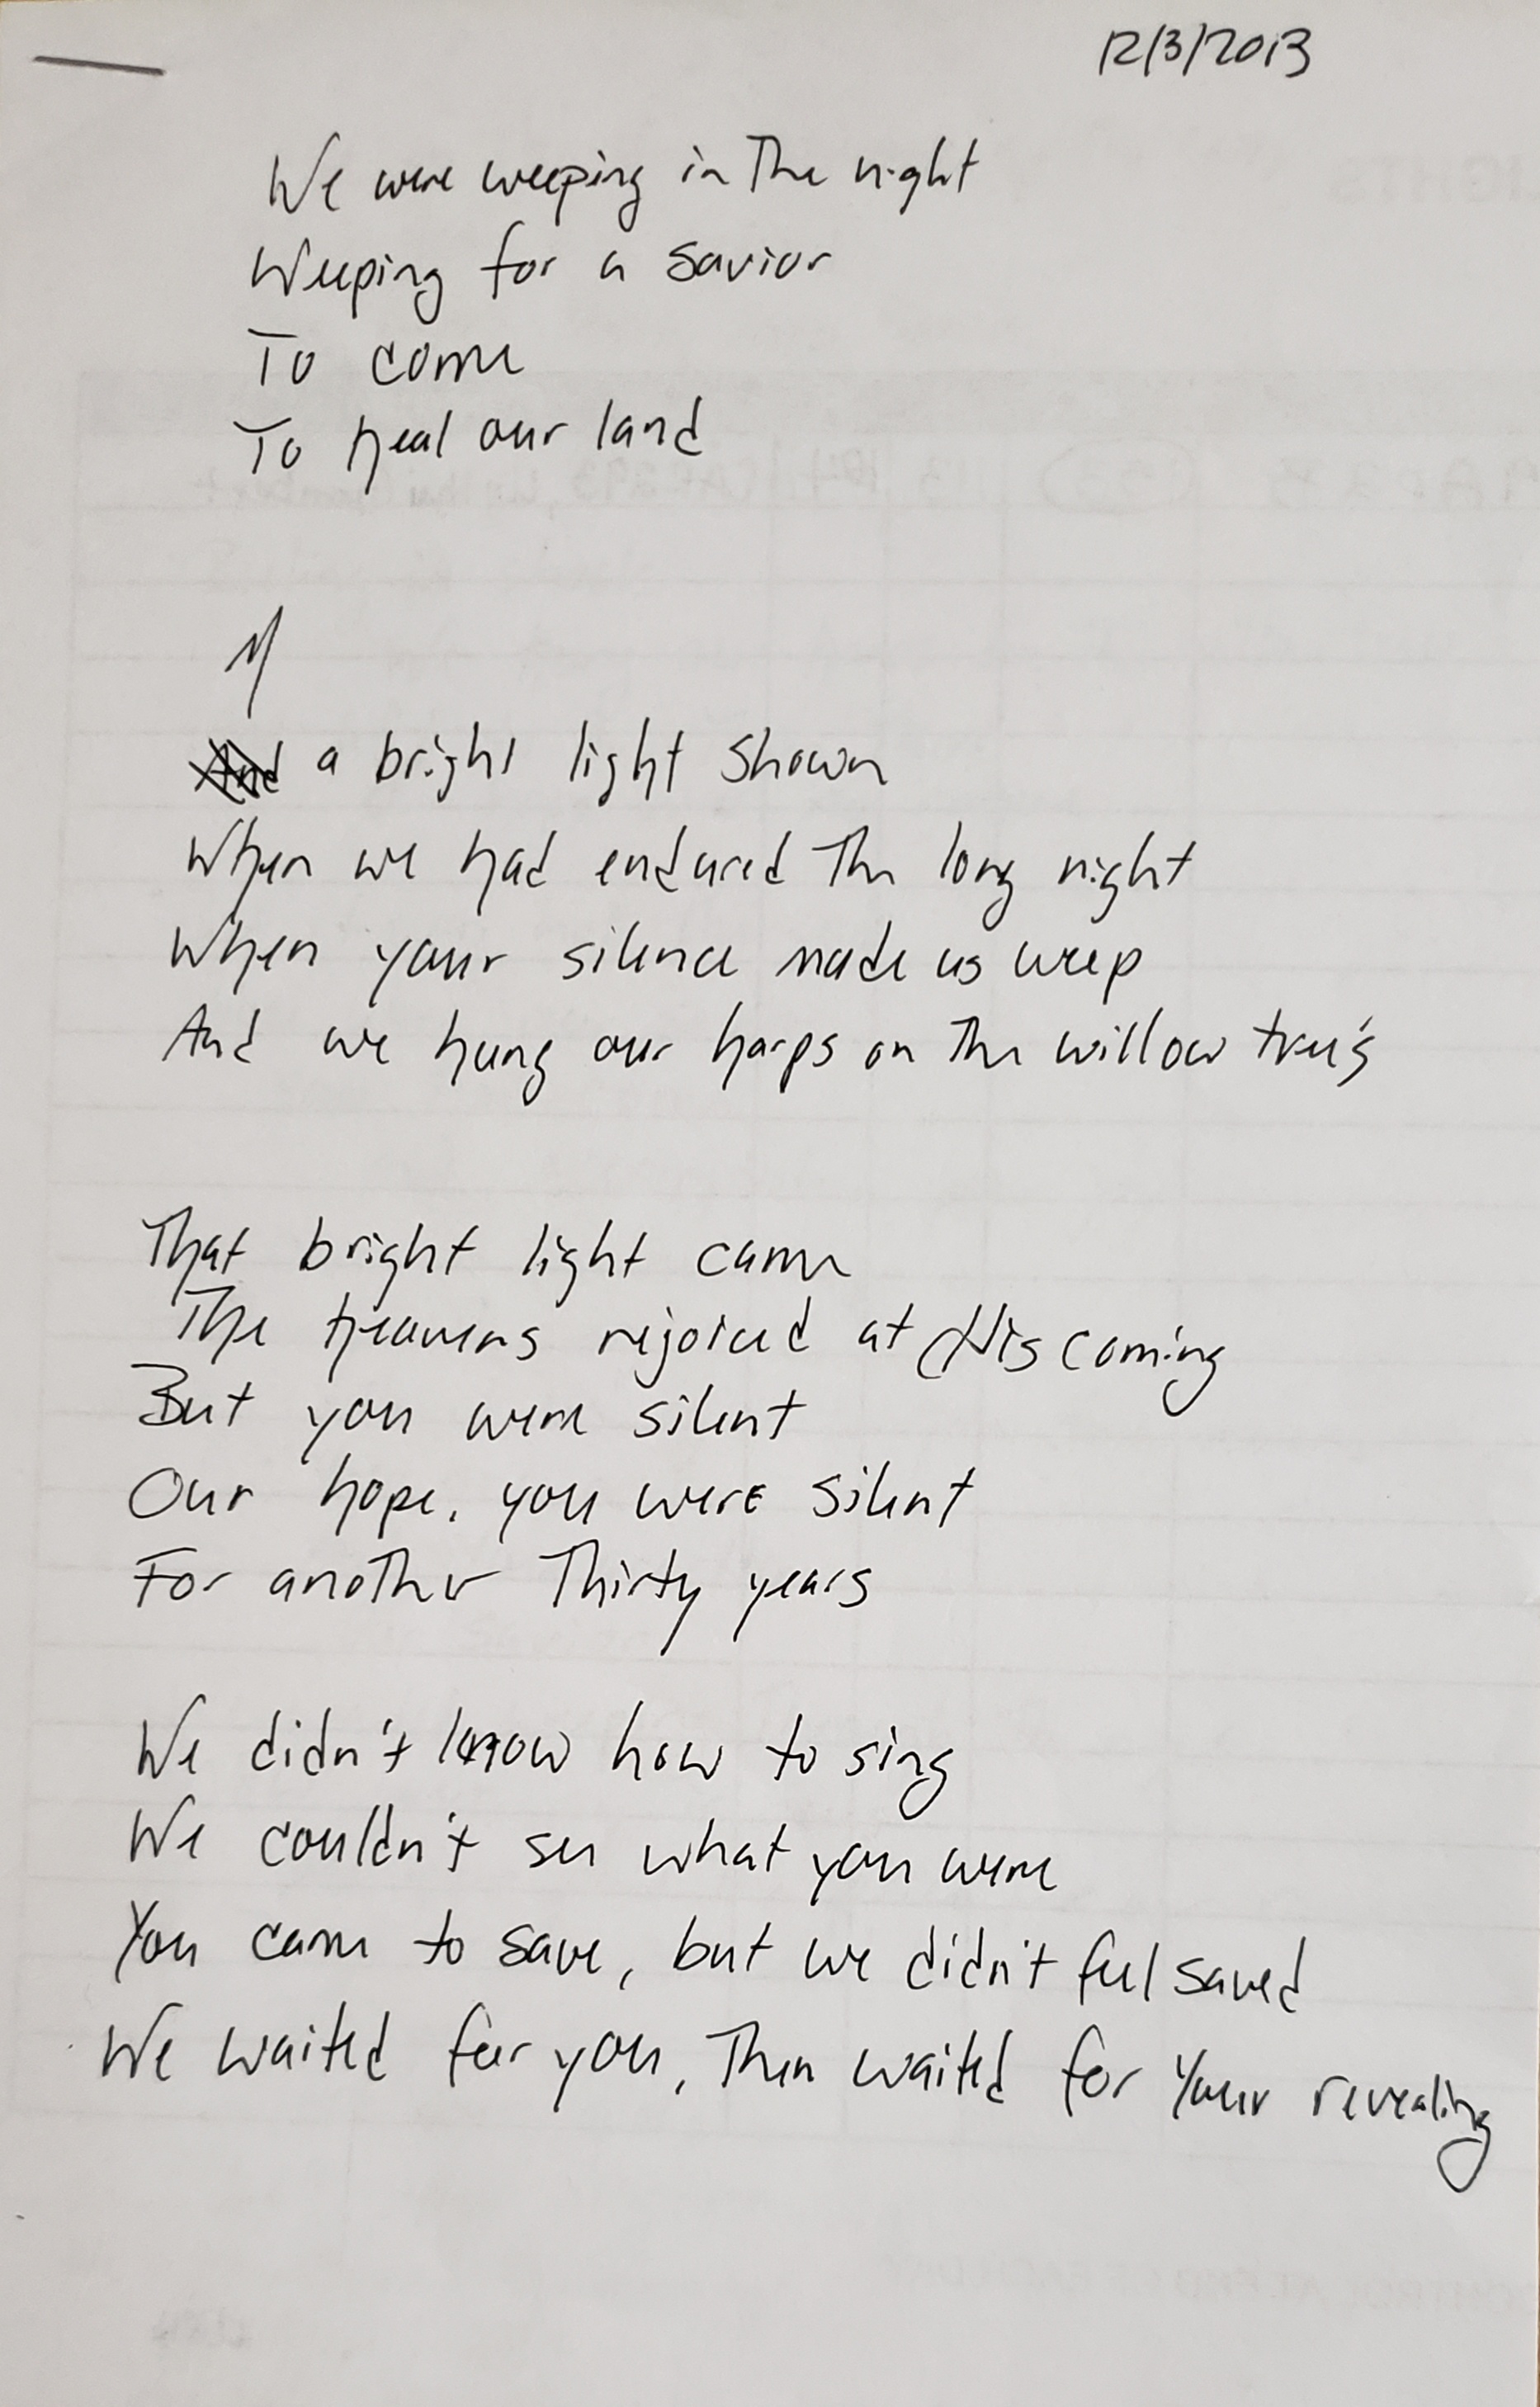 12/3/2013
We were weeping in The night
Weeping for a savior
To come
To heal our land
a bright light shown
When we had endured The long night
When your silence made us weep
And we hung our harps on The willow tree's
That bright light came
The heavens rejoiced at His coming
But you were silent
Our hope, you were silent
For another Thirty years
We didn't know how to sing
We couldn't see what you were
You came to save, but we didn't feel saved
We waited for you, Then waited for Your revealing